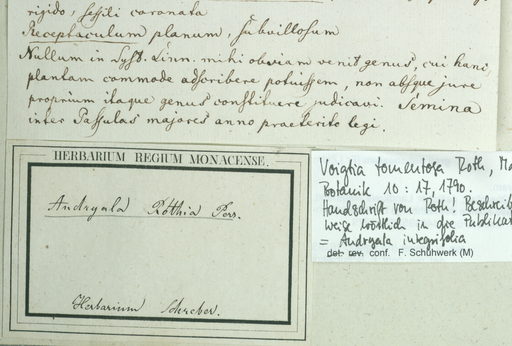 rigido, sessili coronata
Receptaculum planum, subvillosum
Nullum in Syst. Linn. mihi obviam venit genus, cui hanc
plantam commode adscribere potuissem, non absque jure
proprium itaque genus constituere judicavi. Semina
inter Passulas majores anno praeterito legi.
HERBARIUM REGIUM MONACENSE.
Andryala Rothia Pers.
Herbarium Schreber.
Voigtia tomentosa Roth, Ma
Botanik 10: 17, 1790.
Handschrift von Roth! Beschrei
weise wörtlich in die Publikat
= Andryala integrifolia
det. rev. conf. F. Schuhwerk (M)